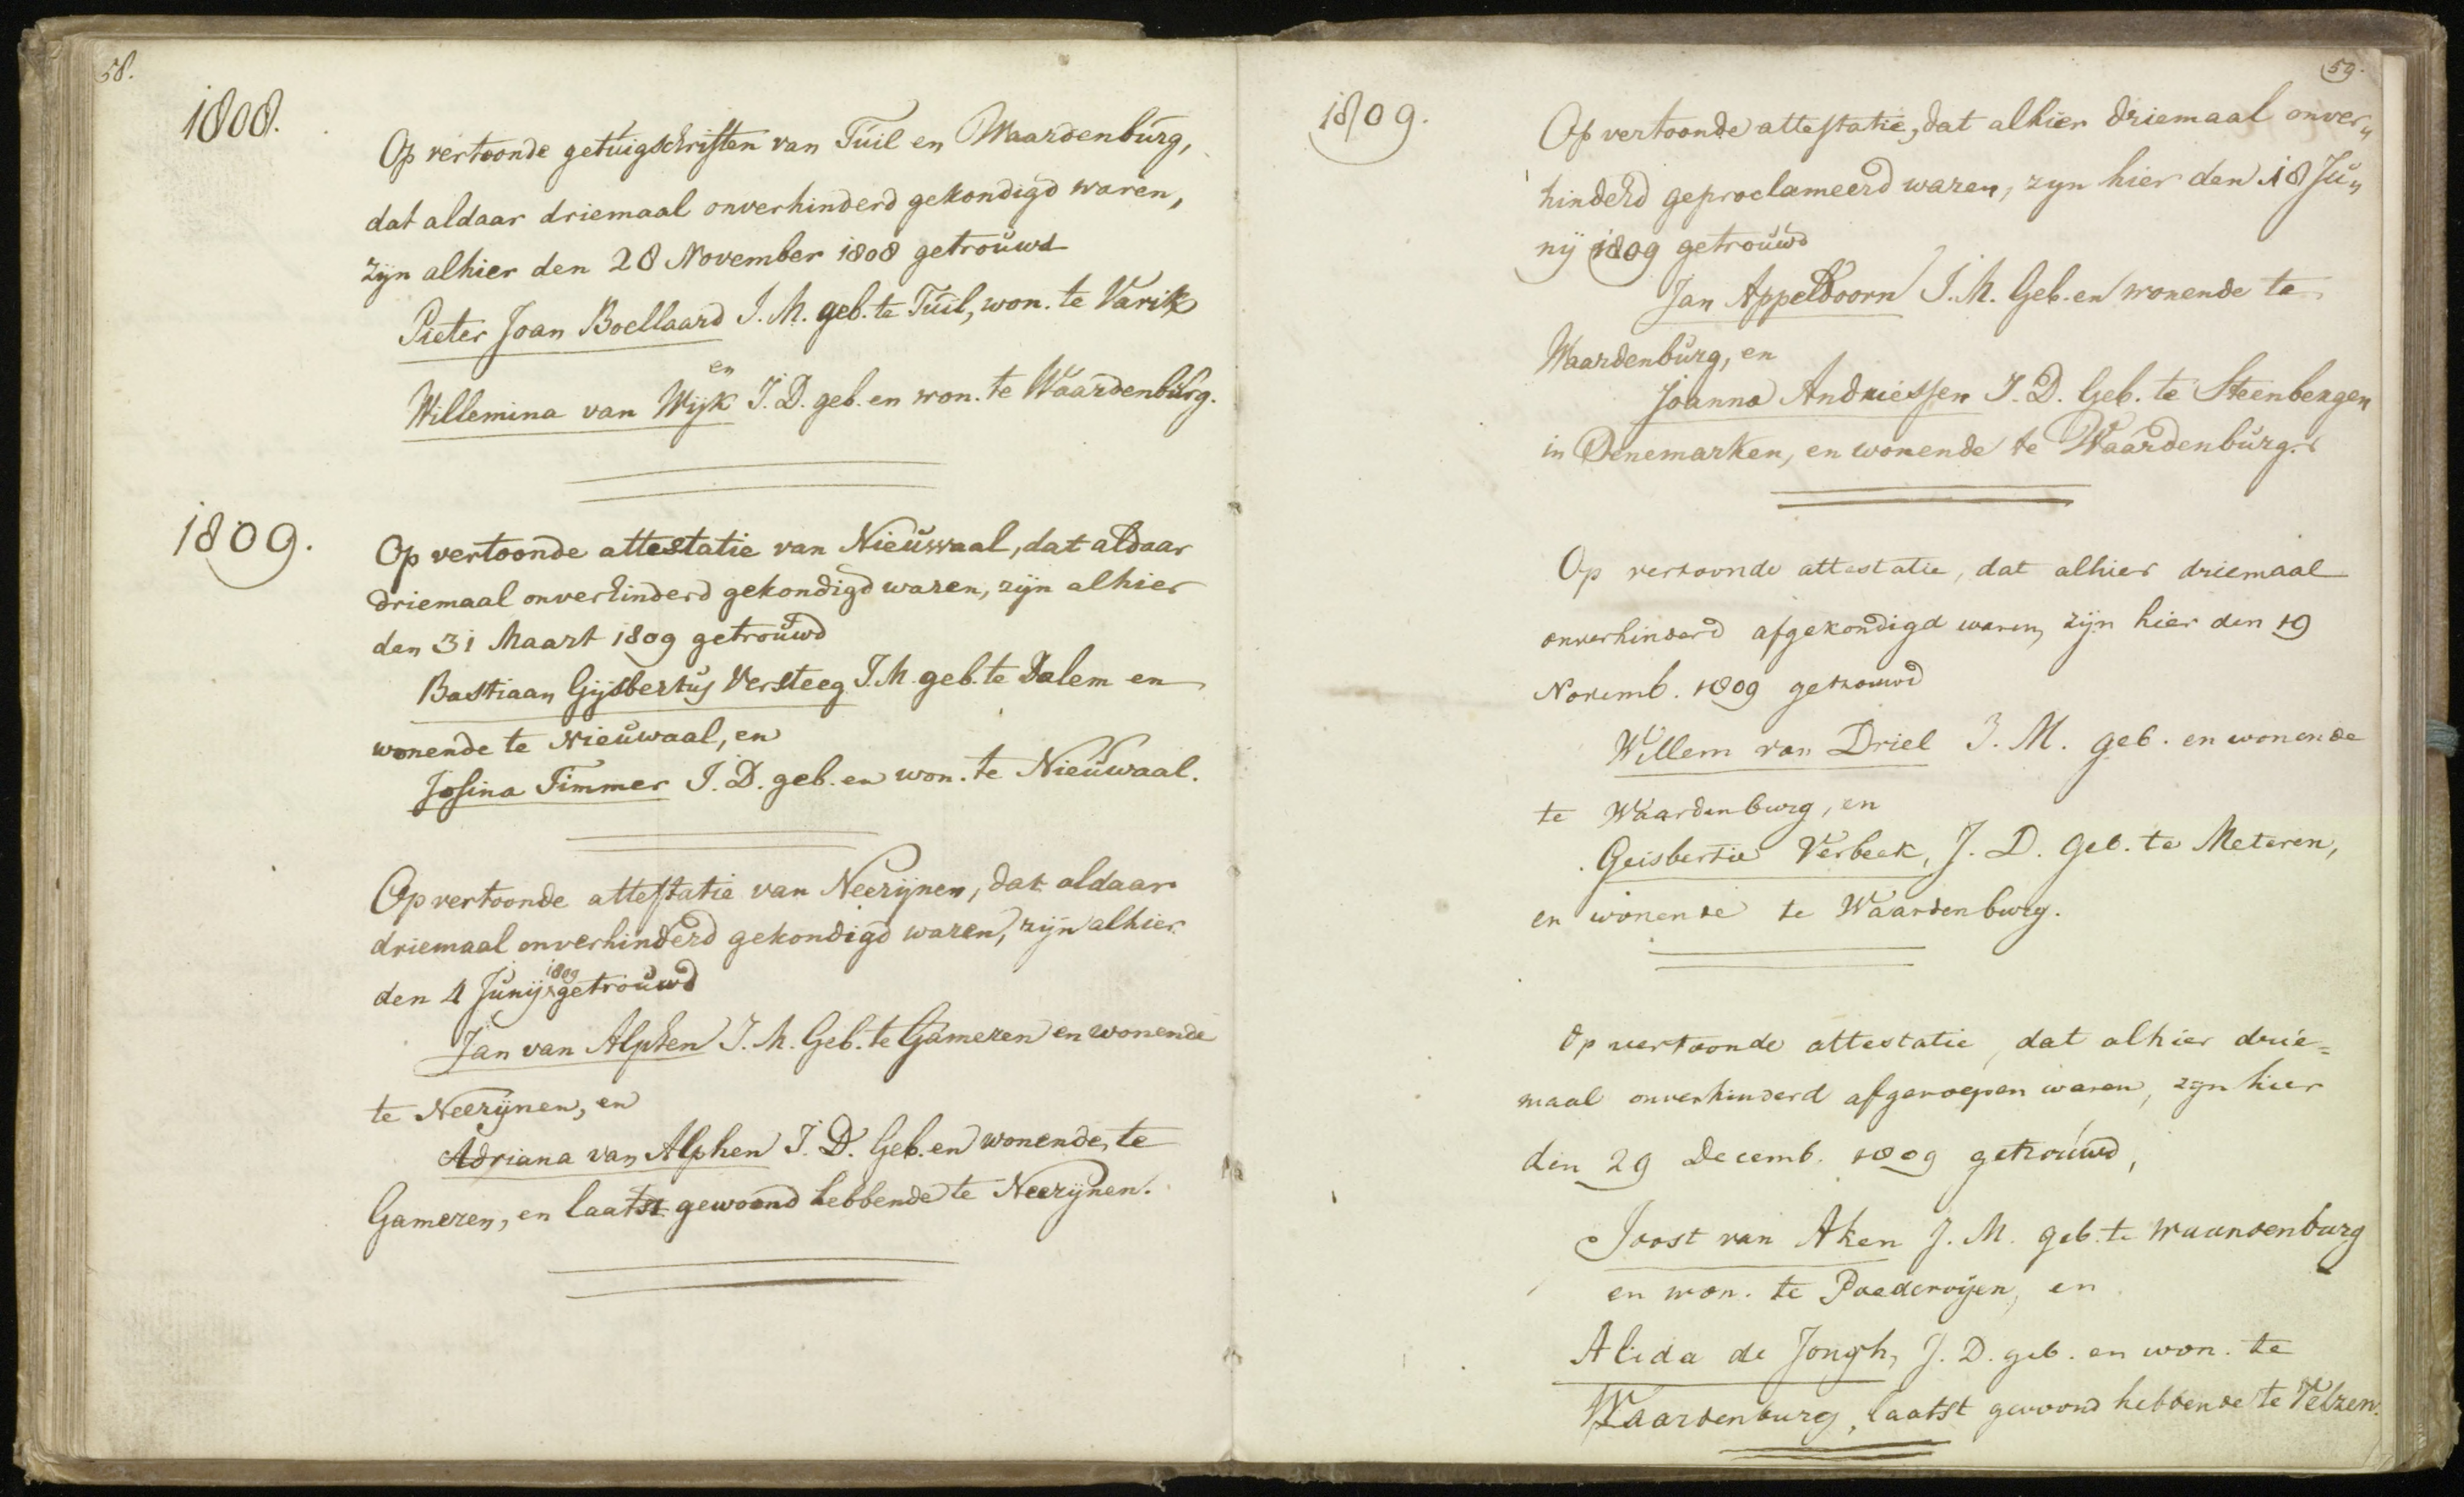 58.
1808.
Op vertoonde getuigschriften van Tuil en Waardenburg,
dat aldaar driemaal onverhinderd gekondigd waren,
zijn alhier den 28 November 1808 getrouwd
Pieter Joan Boellaard J. M. geb. te Tuil, won. te Varik
en
Willemina van Wijk J. D. geb. en won. te Waardenburg.
1809.
Op vertoonde attestatie van Nieuwaal, dat aldaar
driemaal onverhinderd gekondigd waren, zijn alhier
den 31 Maart 1809 getrouwd
Bastiaan Gijsbertus Versteeg J. M. geb. te Dalem en
wonende te Nieuwaal, en
Josina Timmer J. D. geb. en won. te Nieuwaal.
Op vertoonde attestatie van Neerijnen, dat aldaar
driemaal onverhinderd gekondigd waren, zijn alhier
den 4 Junij 1809 getrouwd
Jan van Alphen J. M. Geb. te Gameren en wonende
te Neerijnen, en
Adriana van Alphen J. D. Geb. en wonende te
Gameren, en laatst gewoond hebbende te Neerijnen.
59.
1809.
Op vertoonde attestatie, dat alhier driemaal onver„
hinderd geproclameerd waren, zyn hier den 18 Ju„
nij 1809 getrouwd
Jan Appeldoorn J. M. Geb. en wonende te
Waardenburg, en
Joanna Andriessen J. D. Geb. te Steenbergen
in Denemarken, en wonende te Waardenburg.
Op vertoonde attestatie, dat alhier driemaal
onverhinderd afgekondigd waren, zijn hier den 19
Novemb. 1809 getrouwd
Willem van Driel J. M. geb. en wonende
te Waardenburg, en
Geisbertie Verbeek, J. D. Geb. te Meteren,
en wonende te Waardenburg.
Op vertoonde attestatie, dat alhier drie=
maal onverhinderd afgeroepen waren, zyn hier
den 29 Decemb. 1809 getrouwd,
Joost van Aken J. M. geb. te Waardenburg
en won. te Poederoijen, en
Alida de Jongh, J. D. geb. en won. te
Waardenburg, laatst gewoond hebbende te Velzen.